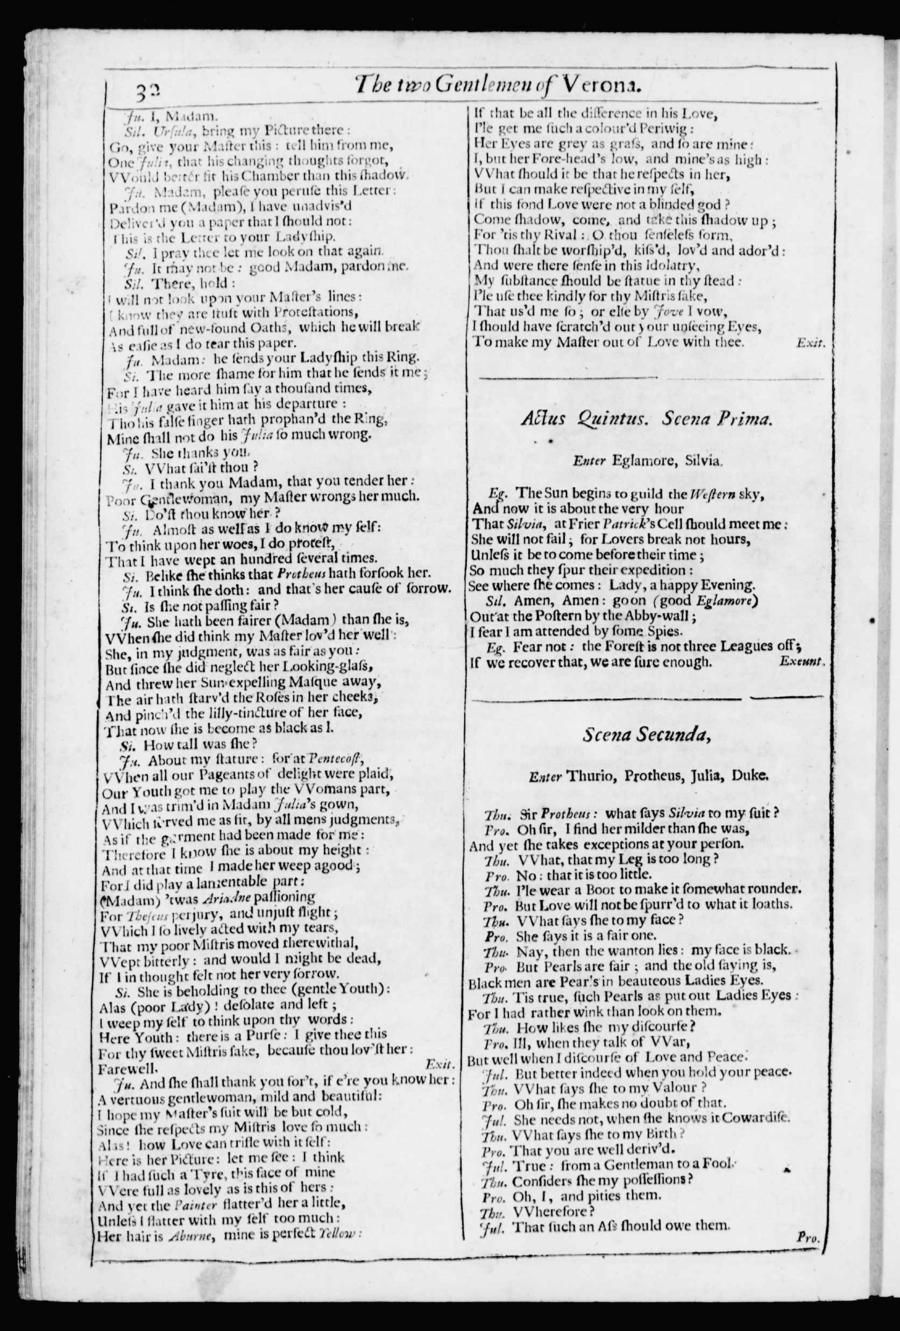 32
The two Gentlemen of Verona.
Ju. I, Madam.
Sil. Ursula, bring my Picture there:
Go, give your Maſter this: tell him from me,
One Julia, that his changing thoughts forgot,
VVould better fit his Chamber than this ſhadow.
Ju. Madam, pleaſe you peruſe this Letter:
Pardon me (Madam), I have unadvis'd
Deliver'd you a paper that I ſhould not:
This is the Letter to your Ladyſhip.
Sil. I pray thee let me look on that again.
Ju. It may not be: good Madam, pardon me.
Sil. There, hold:
I will not look upon your Maſter's lines:
I know they are ſtuft with Proteſtations,
And full of new-found Oaths, which he will break
As eaſie as I do tear this paper.
Ju. Madam: he ſends your Ladyſhip this Ring.
Si. The more ſhame for him that he ſends it me;
For I have heard him ſay a thouſand times,
His Julia gave it him at his departure:
Tho his falſe finger hath prophan'd the Ring,
Mine ſhall not do his Julia ſo much wrong.
Ju. She thanks you.
Si. VVhat ſai'ſt thou?
Ju. I thank you Madam, that you tender her:
Poor Gentlewoman, my Maſter wrongs her much.
Si. Do'ſt thou know her?
Ju. Almoſt as well as I do know my ſelf:
To think upon her woes, I do proteſt,
That I have wept an hundred ſeveral times.
Si. Belike ſhe thinks that Protheus hath forſook her.
Ju. I think ſhe doth: and that's her cauſe of ſorrow.
Si. Is ſhe not paſſing fair?
Ju. She hath been fairer (Madam) than ſhe is,
VVhen ſhe did think my Maſter lov'd her well:
She, in my judgment, was as fair as you:
But ſince ſhe did neglect her Looking-glaſs,
And threw her Sun-expelling Maſque away,
The air hath ſtarv'd the Roſes in her cheeks,
And pinch'd the lilly-tincture of her face,
That now ſhe is become as black as I.
Si. How tall was ſhe?
Ju. About my ſtature: for at Pentecoſt,
VVhen all our Pageants of delight were plaid,
Our Youth got me to play the VVomans part,
And I was trim'd in Madam Julia's gown,
VVhich ſerved me as fit, by all mens judgments,
As if the garment had been made for me:
Therefore I know ſhe is about my height:
And at that time I made her weep agood;
For I did play a lamentable part:
(Madam) 'twas Ariadne paſſioning
For Theſeus perjury, and unjuſt flight;
VVhich I ſo lively acted with my tears,
That my poor Miſtris moved therewithal,
VVept bitterly: and would I might be dead,
If I in thought felt not her very ſorrow.
Si. She is beholding to thee (gentle Youth):
Alas (poor Lady)! deſolate and left;
I weep my ſelf to think upon thy words:
Here Youth: there is a Purſe: I give thee this
For thy ſweet Miſtris ſake, becauſe thou lov'ſt her:
Farewell. Exit.
Ju. And ſhe ſhall thank you for't, if e're you know her:
A vertuous gentlewoman, mild and beautiful:
I hope my Maſter's ſuit will be but cold,
Since ſhe reſpects my Miſtris love ſo much:
Alas! how Love can trifle with it ſelf:
Here is her Picture: let me ſee: I think
If I had ſuch a Tyre, this face of mine
VVere full as lovely as is this of hers:
And yet the Painter flatter'd her a little,
Unleſs I flatter with my ſelf too much:
Her hair is Aburne, mine is perfect Yellow:
If that be all the difference in his Love,
I'le get me ſuch a colour'd Periwig:
Her Eyes are grey as graſs, and ſo are mine:
I, but her Fore-head's low, and mine's as high:
VVhat ſhould it be that he reſpects in her,
But I can make reſpective in my ſelf,
If this fond Love were not a blinded god?
Come ſhadow, come, and take this ſhadow up;
For 'tis thy Rival: O thou ſenſeleſs form,
Thou ſhalt be worſhip'd, kiſs'd, lov'd and ador'd:
And were there ſenſe in this idolatry,
My ſubſtance ſhould be ſtatue in thy ſtead:
I'le uſe thee kindly for thy Miſtris ſake,
That us'd me ſo; or elſe by Jove I vow,
I ſhould have ſcratch'd out your unſeeing Eyes,
To make my Maſter out of Love with thee. Exit.
Actus Quintus. Scena Prima.
Enter Eglamore, Silvia.
Eg. The Sun begins to guild the Weſtern sky,
And now it is about the very hour
That Silvia, at Frier Patrick's Cell ſhould meet me:
She will not fail; for Lovers break not hours,
Unleſs it be to come before their time;
So much they ſpur their expedition:
See where ſhe comes: Lady, a happy Evening.
Sil. Amen, Amen: go on (good Eglamore)
Out at the Poſtern by the Abby-wall;
I fear I am attended by ſome Spies.
Eg. Fear not: the Foreſt is not three Leagues off;
If we recover that, we are ſure enough. Exeunt.
Scena Secunda,
Enter Thurio, Protheus, Julia, Duke.
Thu. Sir Protheus: what ſays Silvia to my ſuit?
Pro. Oh ſir, I find her milder than ſhe was,
And yet ſhe takes exceptions at your perſon.
Thu. VVhat, that my Leg is too long?
Pro. No: that it is too little.
Thu. I'le wear a Boot to make it ſomewhat rounder.
Pro. But Love will not be ſpurr'd to what it loaths.
Thu. VVhat ſays ſhe to my face?
Pro. She ſays it is a fair one.
Thu. Nay, then the wanton lies: my face is black.
Pro. But Pearls are fair; and the old ſaying is,
Black men are Pearls in beauteous Ladies Eyes.
Thu. 'Tis true, ſuch Pearls as put out Ladies Eyes:
For I had rather wink than look on them.
Thu. How likes ſhe my diſcourſe?
Pro. Ill, when they talk of VVar,
But well when I diſcourſe of Love and Peace.
Jul. But better indeed when you hold your peace.
Thu. VVhat ſays ſhe to my Valour?
Pro. Oh ſir, ſhe makes no doubt of that.
Jul. She needs not, when ſhe knows it Cowardiſe.
Thu. VVhat ſays ſhe to my Birth?
Pro. That you are well deriv'd.
Jul. True: from a Gentleman to a Fool.
Thu. Conſiders ſhe my poſſeſſions?
Pro. Oh, I, and pities them.
Thu. VVherefore?
Jul. That ſuch an Aſs ſhould owe them.
Pro.